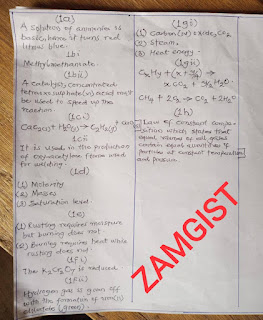 (1a)
A solution of ammonia is
basic, hence it turns red
litmus blue.
1bi
Methylmethanoate.
1bii
A catalyst, concentrated
tetraoxosulphate(vi) acid must
be used to speed up the
reaction.
1ci
CaC2(s) + H2O(g) → C2H2(g)
1cii
It is used in the production
of oxy-acetylene flame used
for welding.
1d)
(1) Molarity
(2) Moles
(3) Saturation level
1e)
(1) Rusting requires moisture
but burning does not
(2) Burning requires heat while
rusting does not
1fi)
The K2Cr2O7 is reduced
1fii)
Hydrogen gas is given off
with the formation of
solution (green)
(1gi)
(1) Carbon(iv)oxide, CO2
(2) Steam.
(3) Heat energy.
(1gii)
CxHy + (x + y/4) →
x CO2 + y/2 H2O.
CH4 + 2O2 → CO2 + 2H2O
(1h)
Law of constant compo-
sition which states that
equal volumes of all gases
contain equal quantities of
particles at constant temperature
and pressure
ZAMGIST